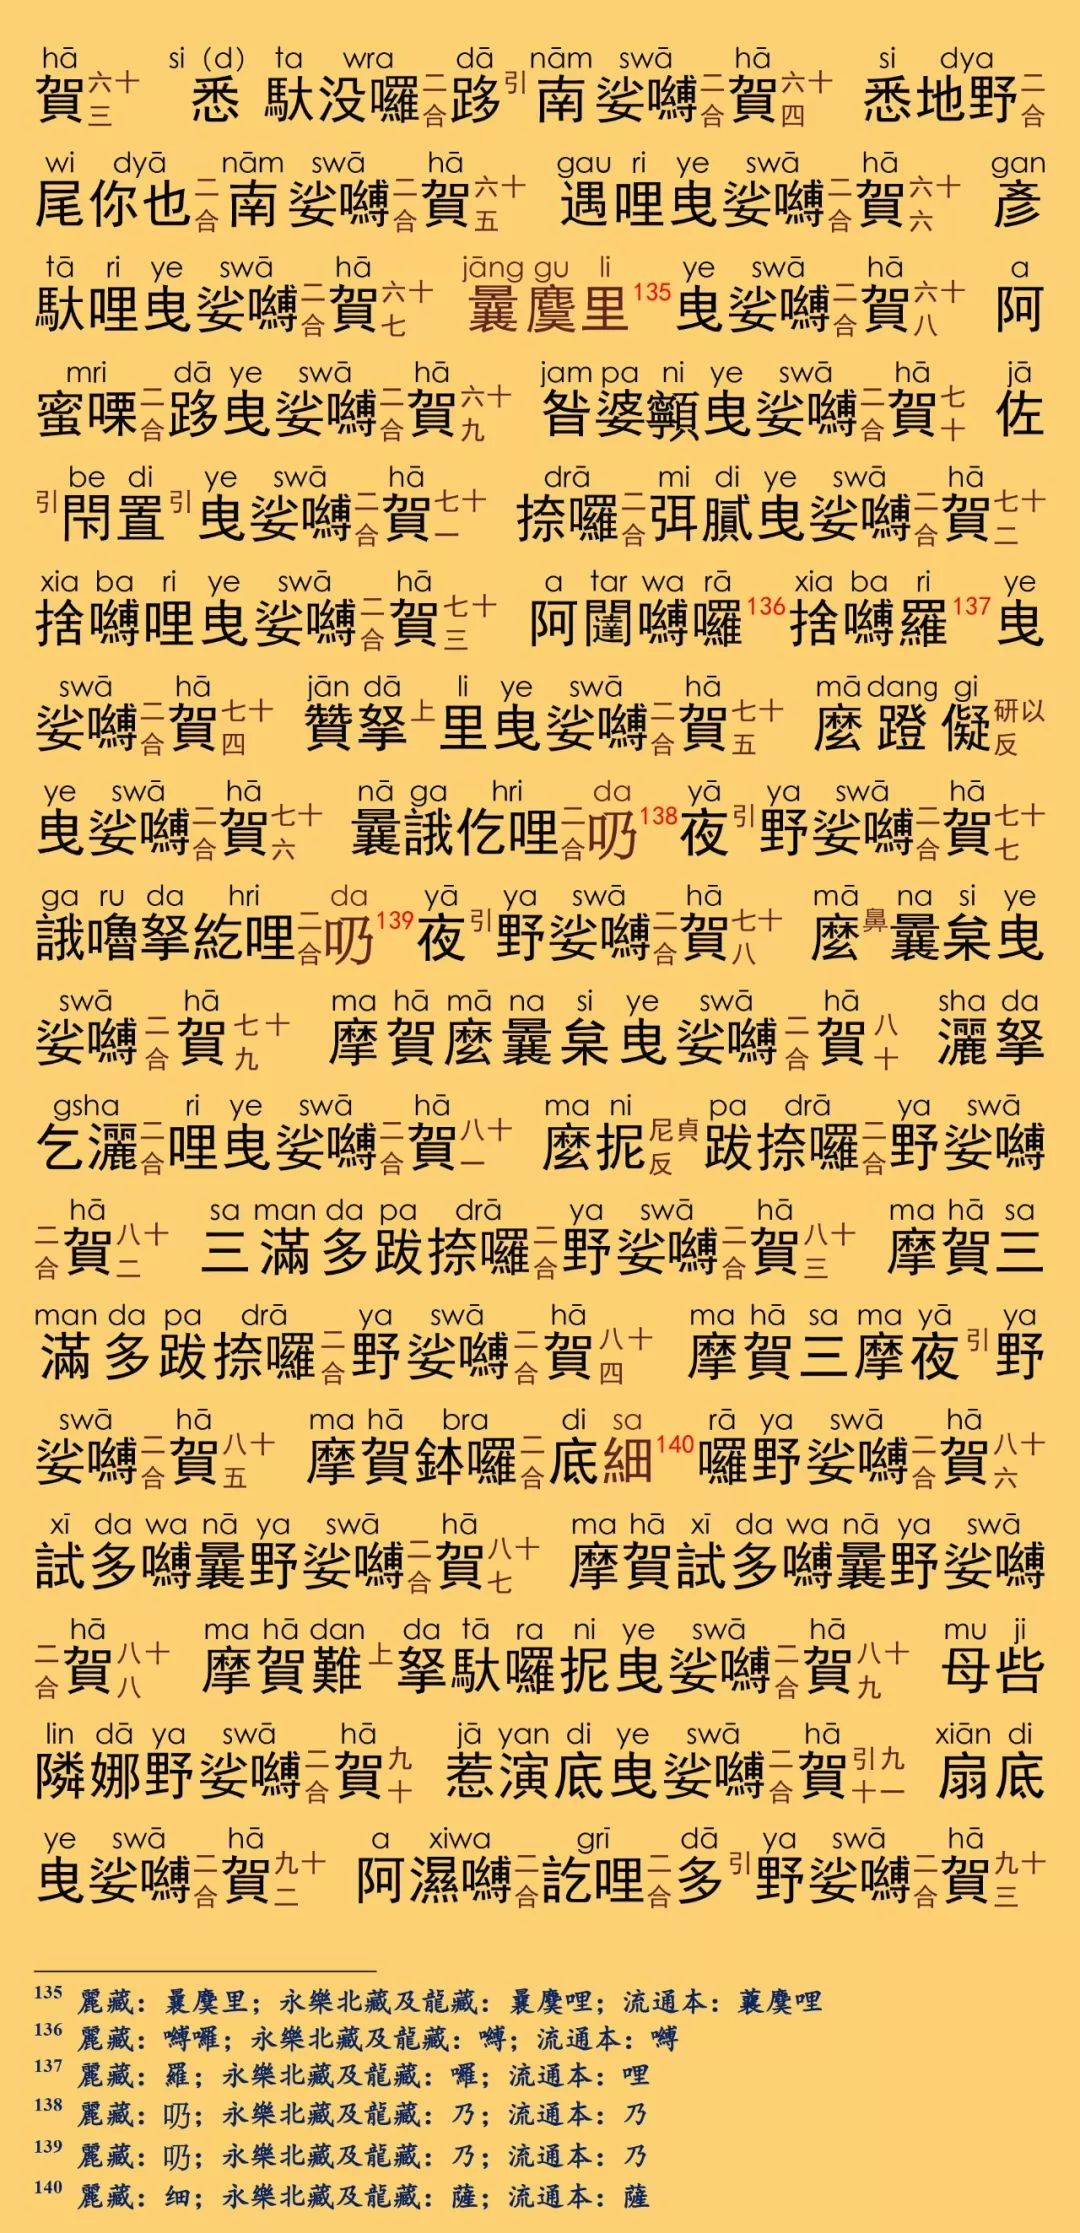 hā si（d）ta wra dā nām swā hā si dya
賀六十三 悉馱没囉二合跢引南娑嚩二合賀六十四 悉地野二合
wi dyā nām swā hā gau ri ye swā hā gan
尾你也二合南娑嚩二合賀六十五 遇哩曳娑嚩二合賀六十六 彥
tā ri ye swā hā jāng gu li ye swā hā a
馱哩曳娑嚩二合賀六十七 曩麌里135曳娑嚩二合賀六十八 阿
mri dā ye swā hā jam pa ni ye swā hā jā
蜜㗚二合跢曳娑嚩二合賀六十九 昝婆顊曳娑嚩二合賀七十 佐
be di ye swā hā drā mi di ye swā hā
引閇置引曳娑嚩二合賀七十一 捺囉二合弭膩曳娑嚩二合賀七十二
xia ba ri ye swā hā a tar wa rā xia ba ri ye
捨嚩哩曳娑嚩二合賀七十三 阿闥嚩囉136捨嚩羅137曳
swā hā jān dā li ye swā hā mā dang gi
娑嚩二合賀七十四 贊拏上里曳娑嚩二合賀七十五 麼蹬儗研以反
ye swā hā nā ga hri da yā ya swā hā
曳娑嚩二合賀七十六 曩誐仡哩二合㕶138夜引野娑嚩二合賀七十七
ga ru da hri da yā ya swā hā mā na si ye
誐嚕拏紇哩二合㕶139夜引野娑嚩二合賀七十八 麼鼻曩枲曳
swā hā ma hā mā na si ye swā hā sha da
娑嚩二合賀七十九 摩賀麼曩枲曳娑嚩二合賀八十 灑拏
gsha ri ye swā hā ma ni pa drā ya swā
乞灑二合哩曳娑嚩二合賀八十一 麼抳尼貞反跋捺囉二合野娑嚩
hā sa man da pa drā ya swā hā ma hā sa
二合賀八十二 三滿多跋捺囉二合野娑嚩二合賀八十三 摩賀三
man da pa drā ya swā hā ma hā sa ma yā ya
滿多跋捺囉二合野娑嚩二合賀八十四 摩賀三摩夜引野
swā hā ma hā bra di sa rā ya swā hā
娑嚩二合賀八十五 摩賀鉢囉二合底細140囉野娑嚩二合賀八十六
xī da wa nā ya swā hā ma hā xī da wa nā ya swā
試多嚩曩野娑嚩二合賀八十七 摩賀試多嚩曩野娑嚩
hā ma hā dan da tā ra ni ye swā hā mu ji
二合賀八十八 摩賀難上拏馱囉抳曳娑嚩二合賀八十九 母呰
lin dā ya swā hā jā yan di ye swā hā xiān di
隣娜野娑嚩二合賀九十 惹演底曳娑嚩二合賀引九十一 扇底
ye swā hā a xiwa grī dā ya swā hā
曳娑嚩二合賀九十二 阿濕嚩二合訖哩二合多引野娑嚩二合賀九十三
135 麗藏：曩麌里；永樂北藏及龍藏：曩麌哩；流通本：蘘麌哩
136 麗藏：嚩囉；永樂北藏及龍藏：嚩；流通本：嚩
137 麗藏：羅；永樂北藏及龍藏：囉；流通本：哩
138 麗藏：㕶；永樂北藏及龍藏：乃；流通本：乃
139 麗藏：㕶；永樂北藏及龍藏：乃；流通本：乃
140 麗藏：细；永樂北藏及龍藏：薩；流通本：薩